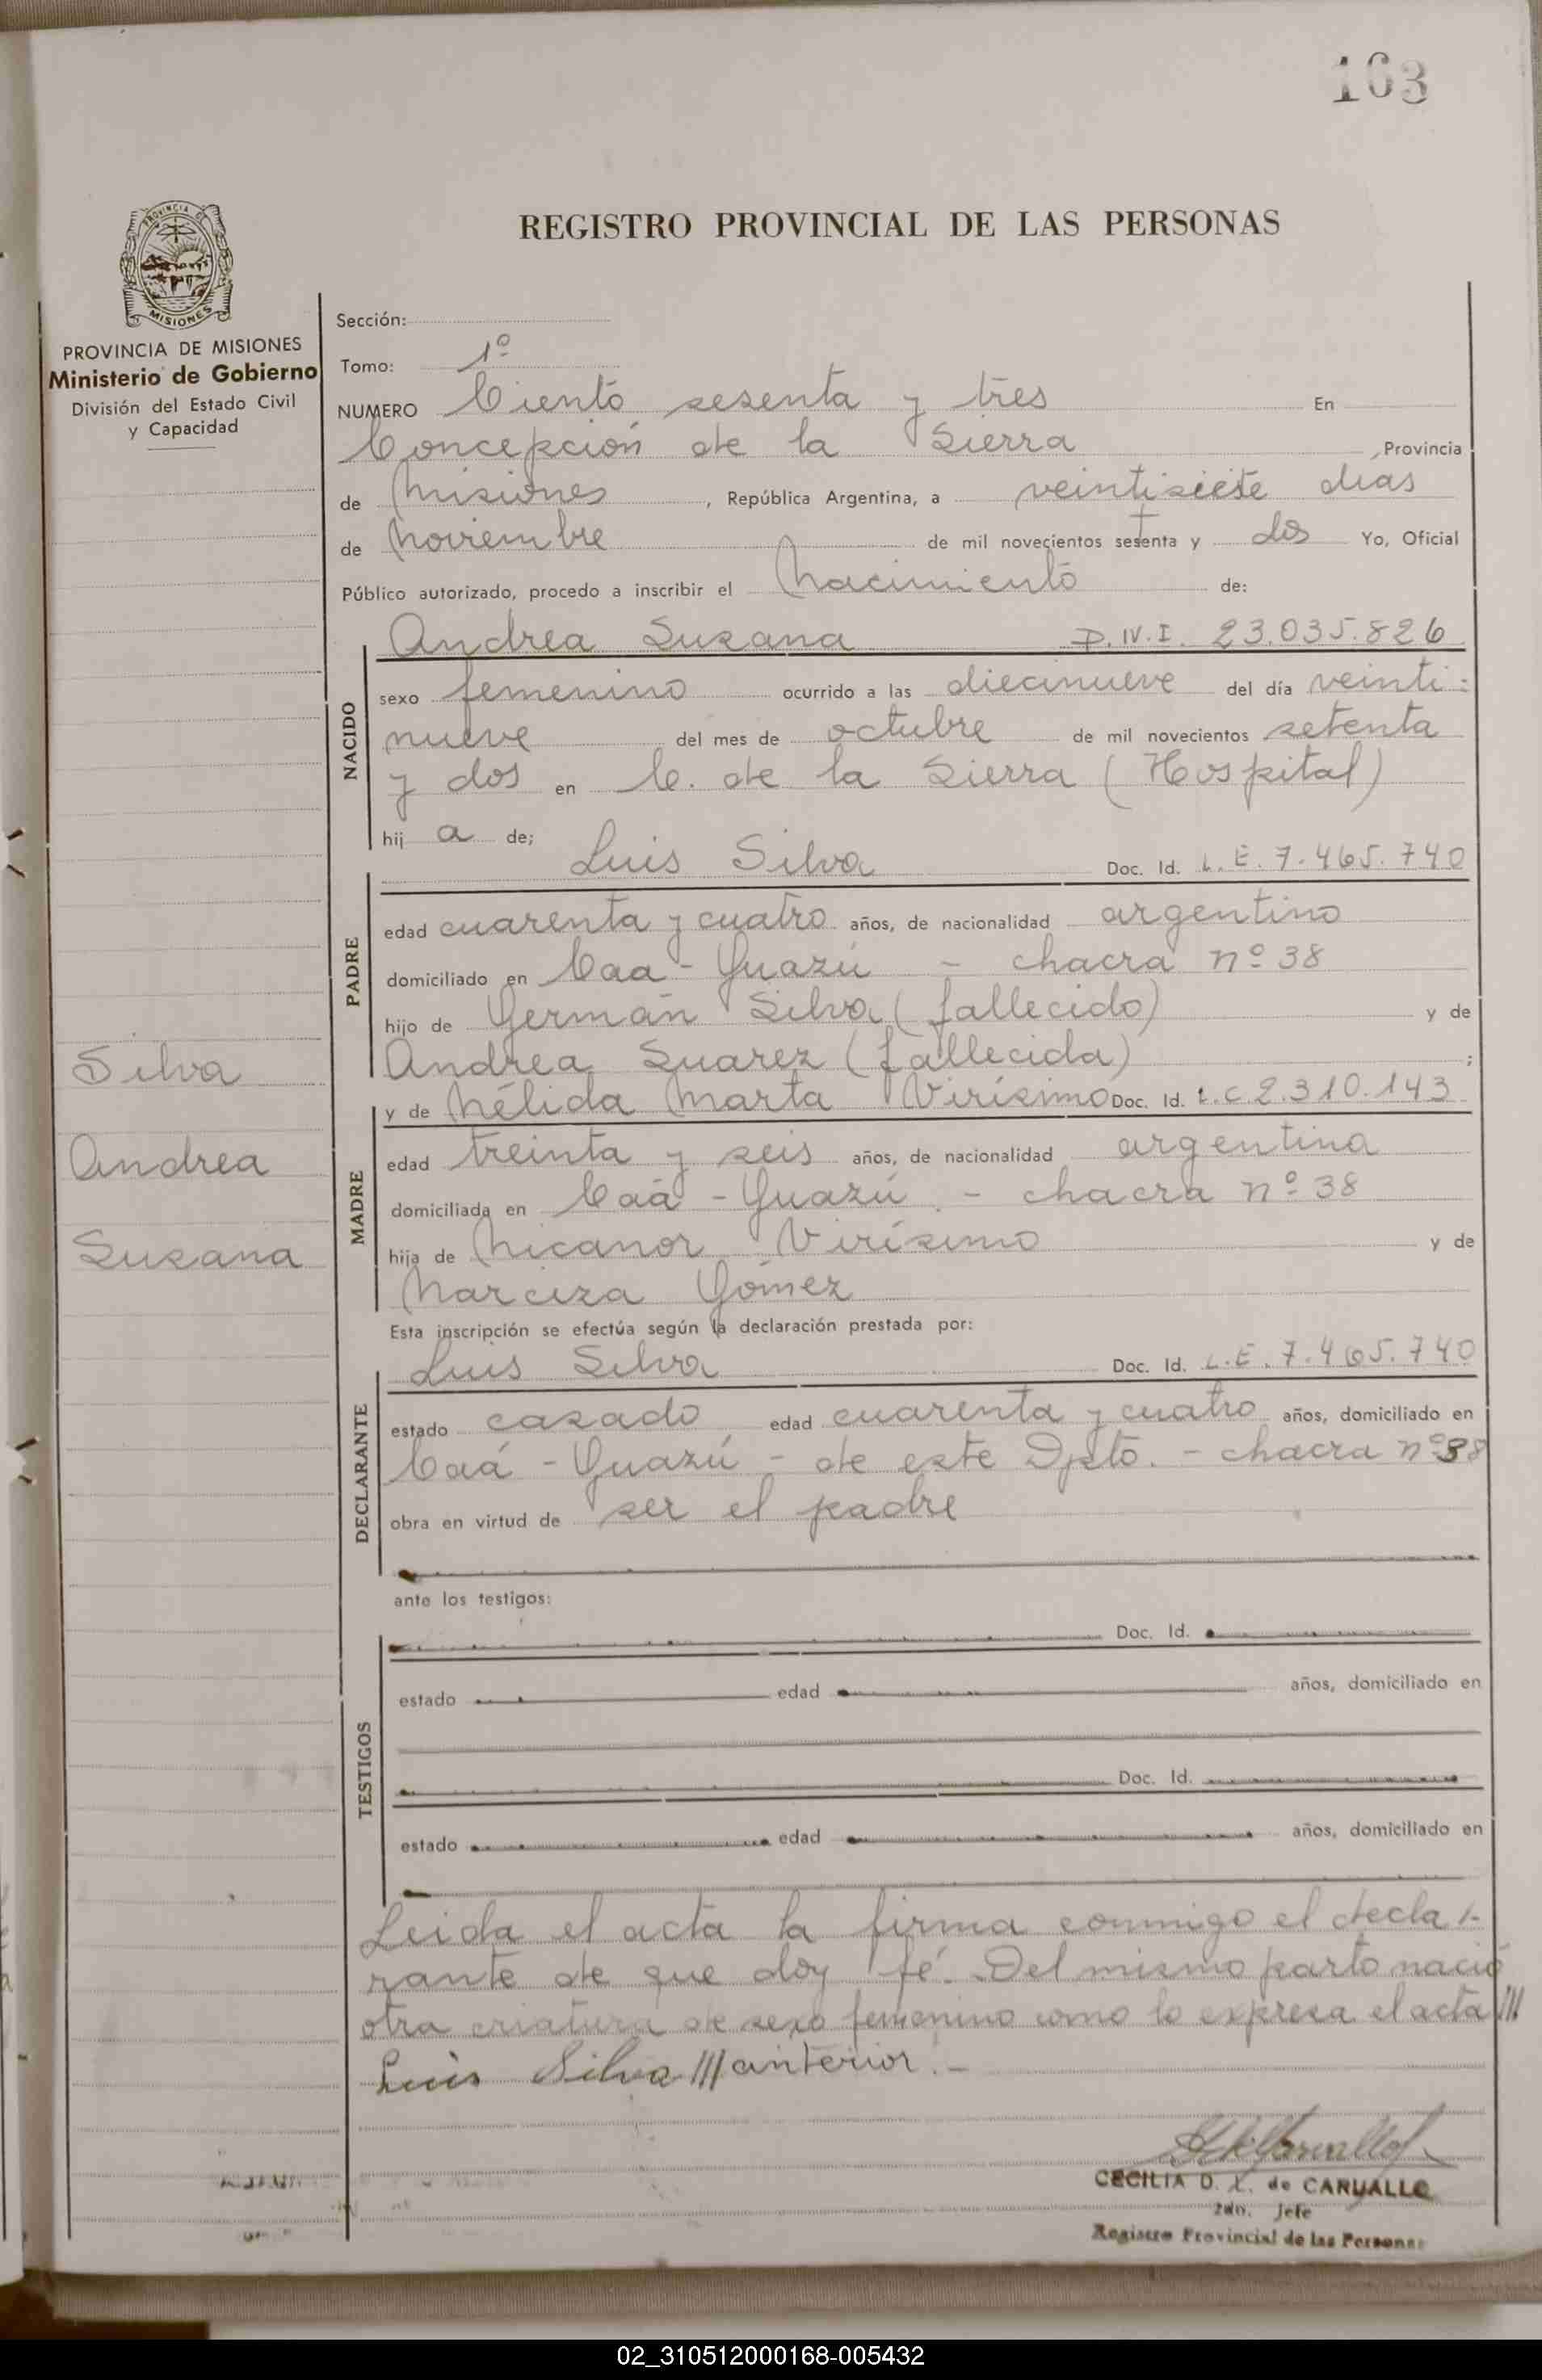 163
REGISTRO PROVINCIAL DE LAS PERSONAS
PROVINCIA DE MISIONES
PROVINCIA DE MISIONES
Ministerio de Gobierno
División del Estado Civil
y Capacidad
Silva
Andrea
Susana
Sección:
Tomo: 1º
NUMERO Ciento sesenta y tres En
Concepción de la Sierra , Provincia
de Misiones , República Argentina, a veintisiete dias
de Noviembre de mil novecientos sesenta y dos Yo, Oficial
t
Público autorizado, procedo a inscribir el Nacimiento de:
Andrea Susana D.N.I. 23.035.826
NACIDO
sexo femenino ocurrido a las diecinueve del día veinti-
nueve del mes de octubre de mil novecientos setenta
y dos en C. de la Sierra (Hospital)
hij a de;
Luis Silva Doc. Id. L.E. 7.465.740
PADRE
edad cuarenta y cuatro años, de nacionalidad argentino
domiciliado en Caa-Guazú - chacra nº 38
hijo de Germán Silva (fallecido) y de
Andrea Suarez (fallecida) ;
y de Nélida Marta Virísimo Doc. Id. L.C. 2.310.143
MADRE
edad treinta y seis años, de nacionalidad argentina
domiciliada en Caá-Guazú - chacra nº 38
hija de Nicanor Virísimo y de
Narcisa Gómez
Esta inscripción se efectúa según la declaración prestada por:
Luis Silva Doc. Id. L.E. 7.465.740
DECLARANTE
estado casado edad cuarenta y cuatro años, domiciliado en
Caá-Guazú - de este Dpto. - chacra nº 38
obra en virtud de ser el padre
ante los testigos:
Doc. Id.
TESTIGOS
estado edad años, domiciliado en
Doc. Id.
estado edad años, domiciliado en
Leida el acta la firma conmigo el decla-
rante de que doy fé. Del mismo parto nació
otra criatura de sexo femenino como lo expresa el acta ///
Luis Silva /// anterior. -
CECILIA D. L. de CARVALLO
2do. Jefe
Registro Provincial de las Personas
02_310512000168-005432